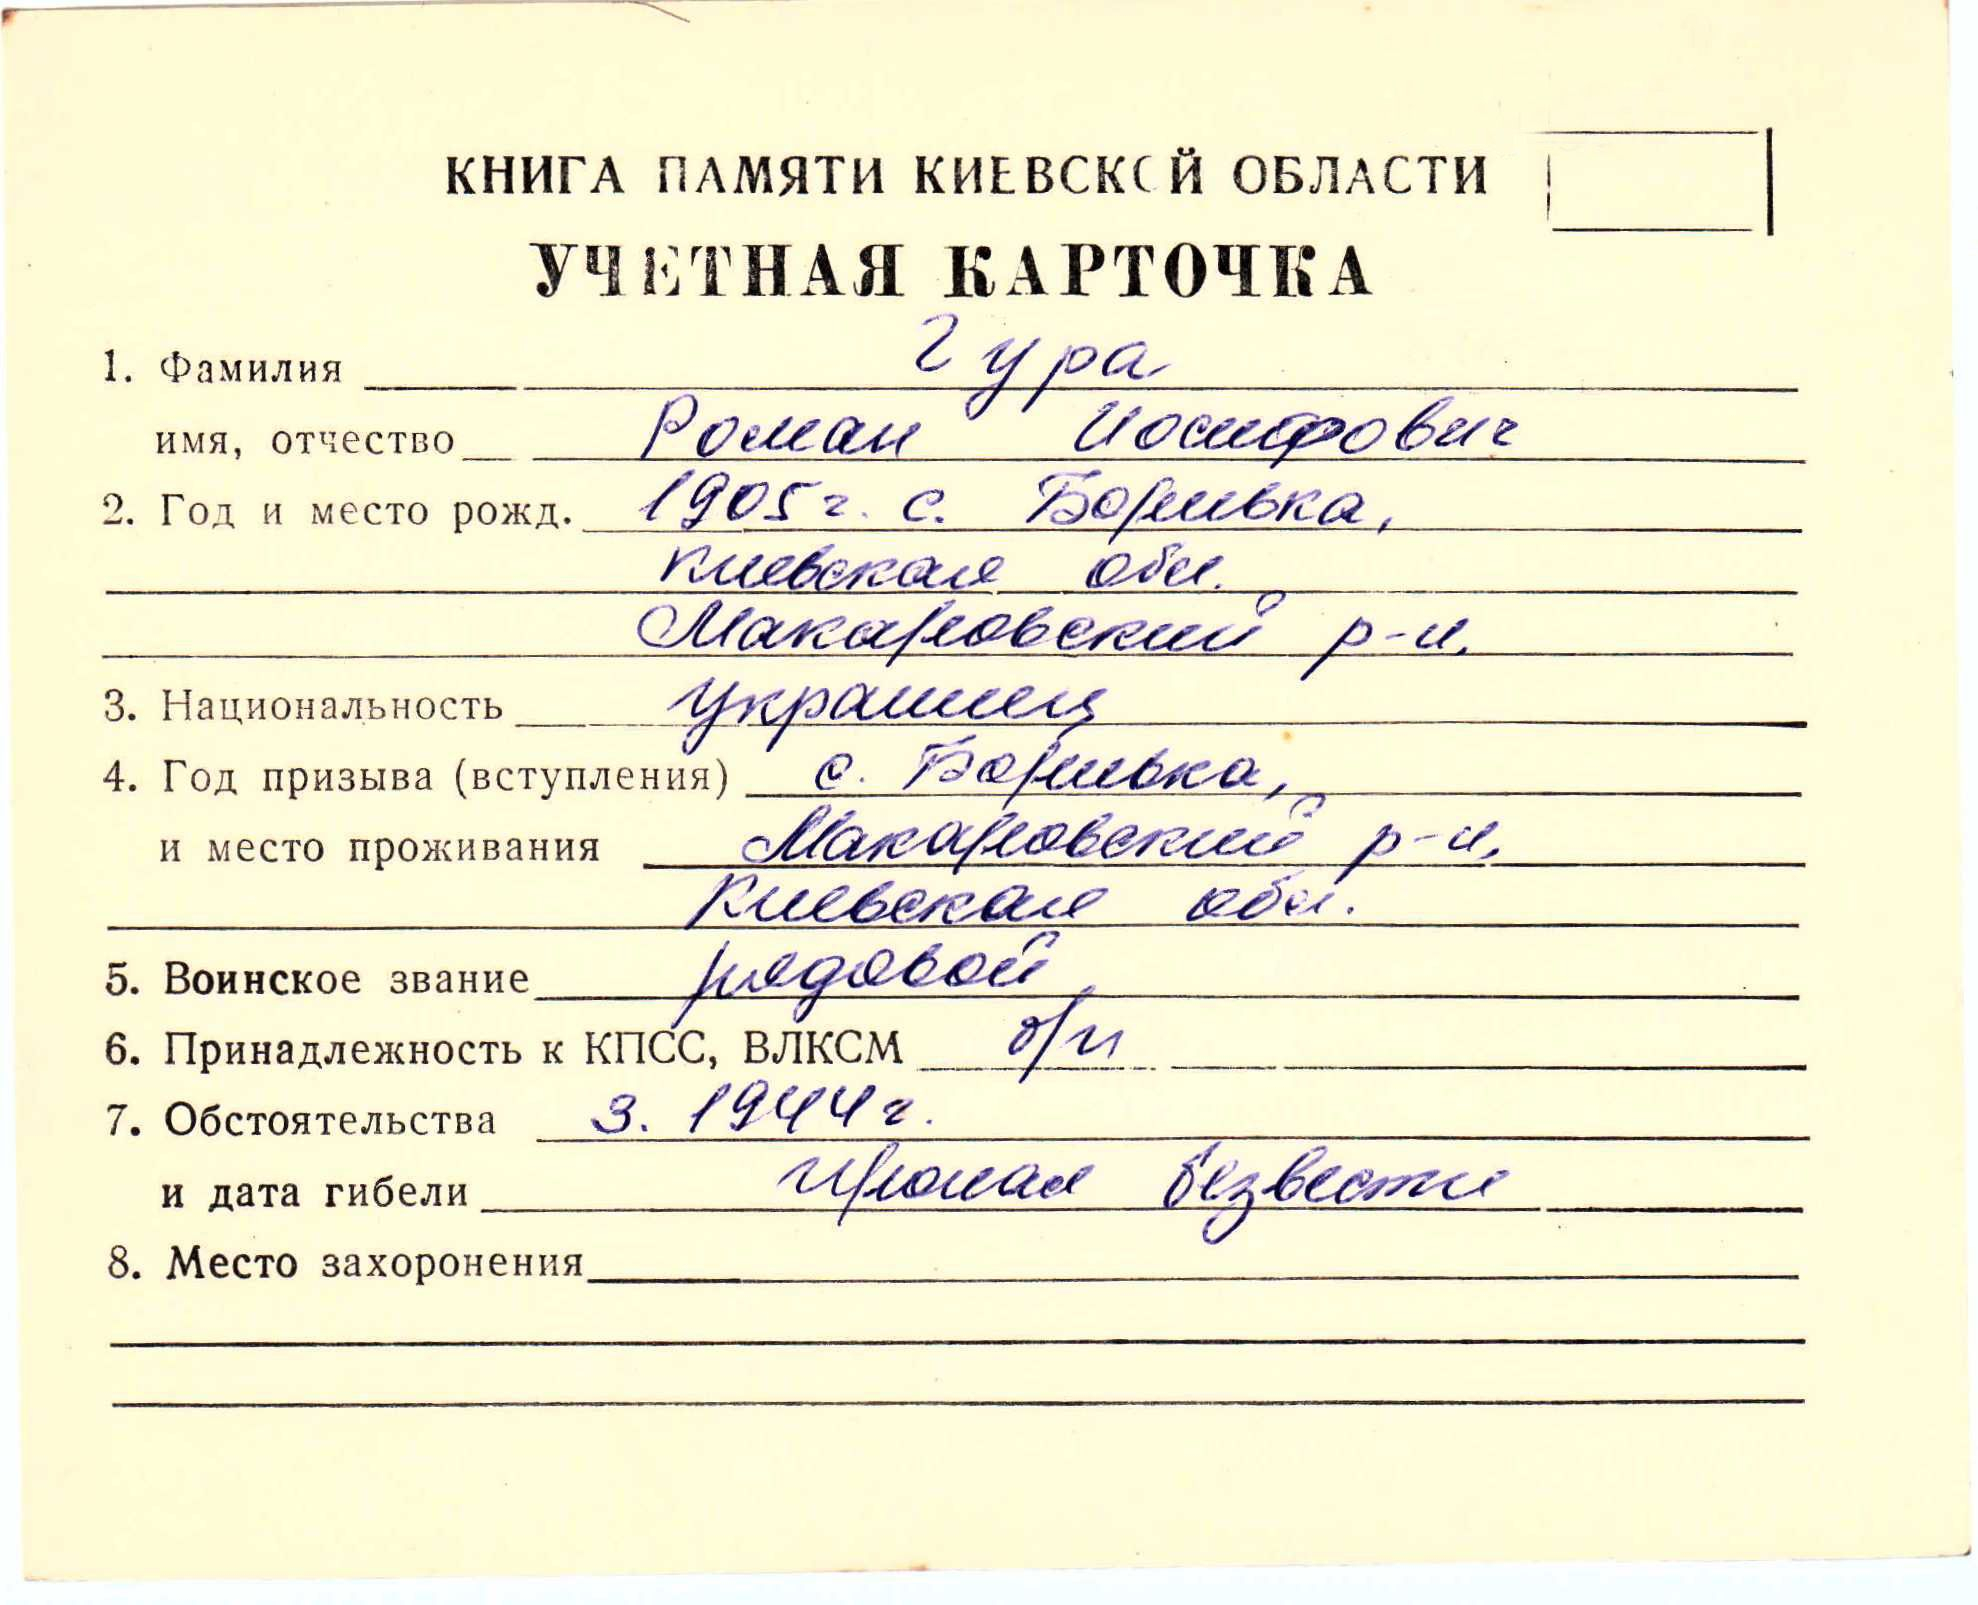 КНИГА ПАМЯТИ КИЕВСКОЙ ОБЛАСТИ
УЧЕТНАЯ КАРТОЧКА
1. Фамилия Гура
имя, отчество Роман Иосифович
2. Год и место рожд. 1905 г. с. Боривка,
Киевская обл.
Макаровский р-н,
3. Национальность украинец
4. Год призыва (вступления) с. Боривка,
и место проживания Макаровский р-н,
Киевская обл.
5. Воинское звание рядовой
6. Принадлежность к КПСС, ВЛКСМ б/п
7. Обстоятельства 3. 1944 г.
и дата гибели пропал безвести
8. Место захоронения